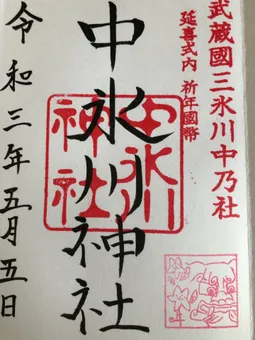 武蔵國三氷川中乃社
延喜式内 祈年國幣
中氷川神社
中氷川神社
令和三年五月五日